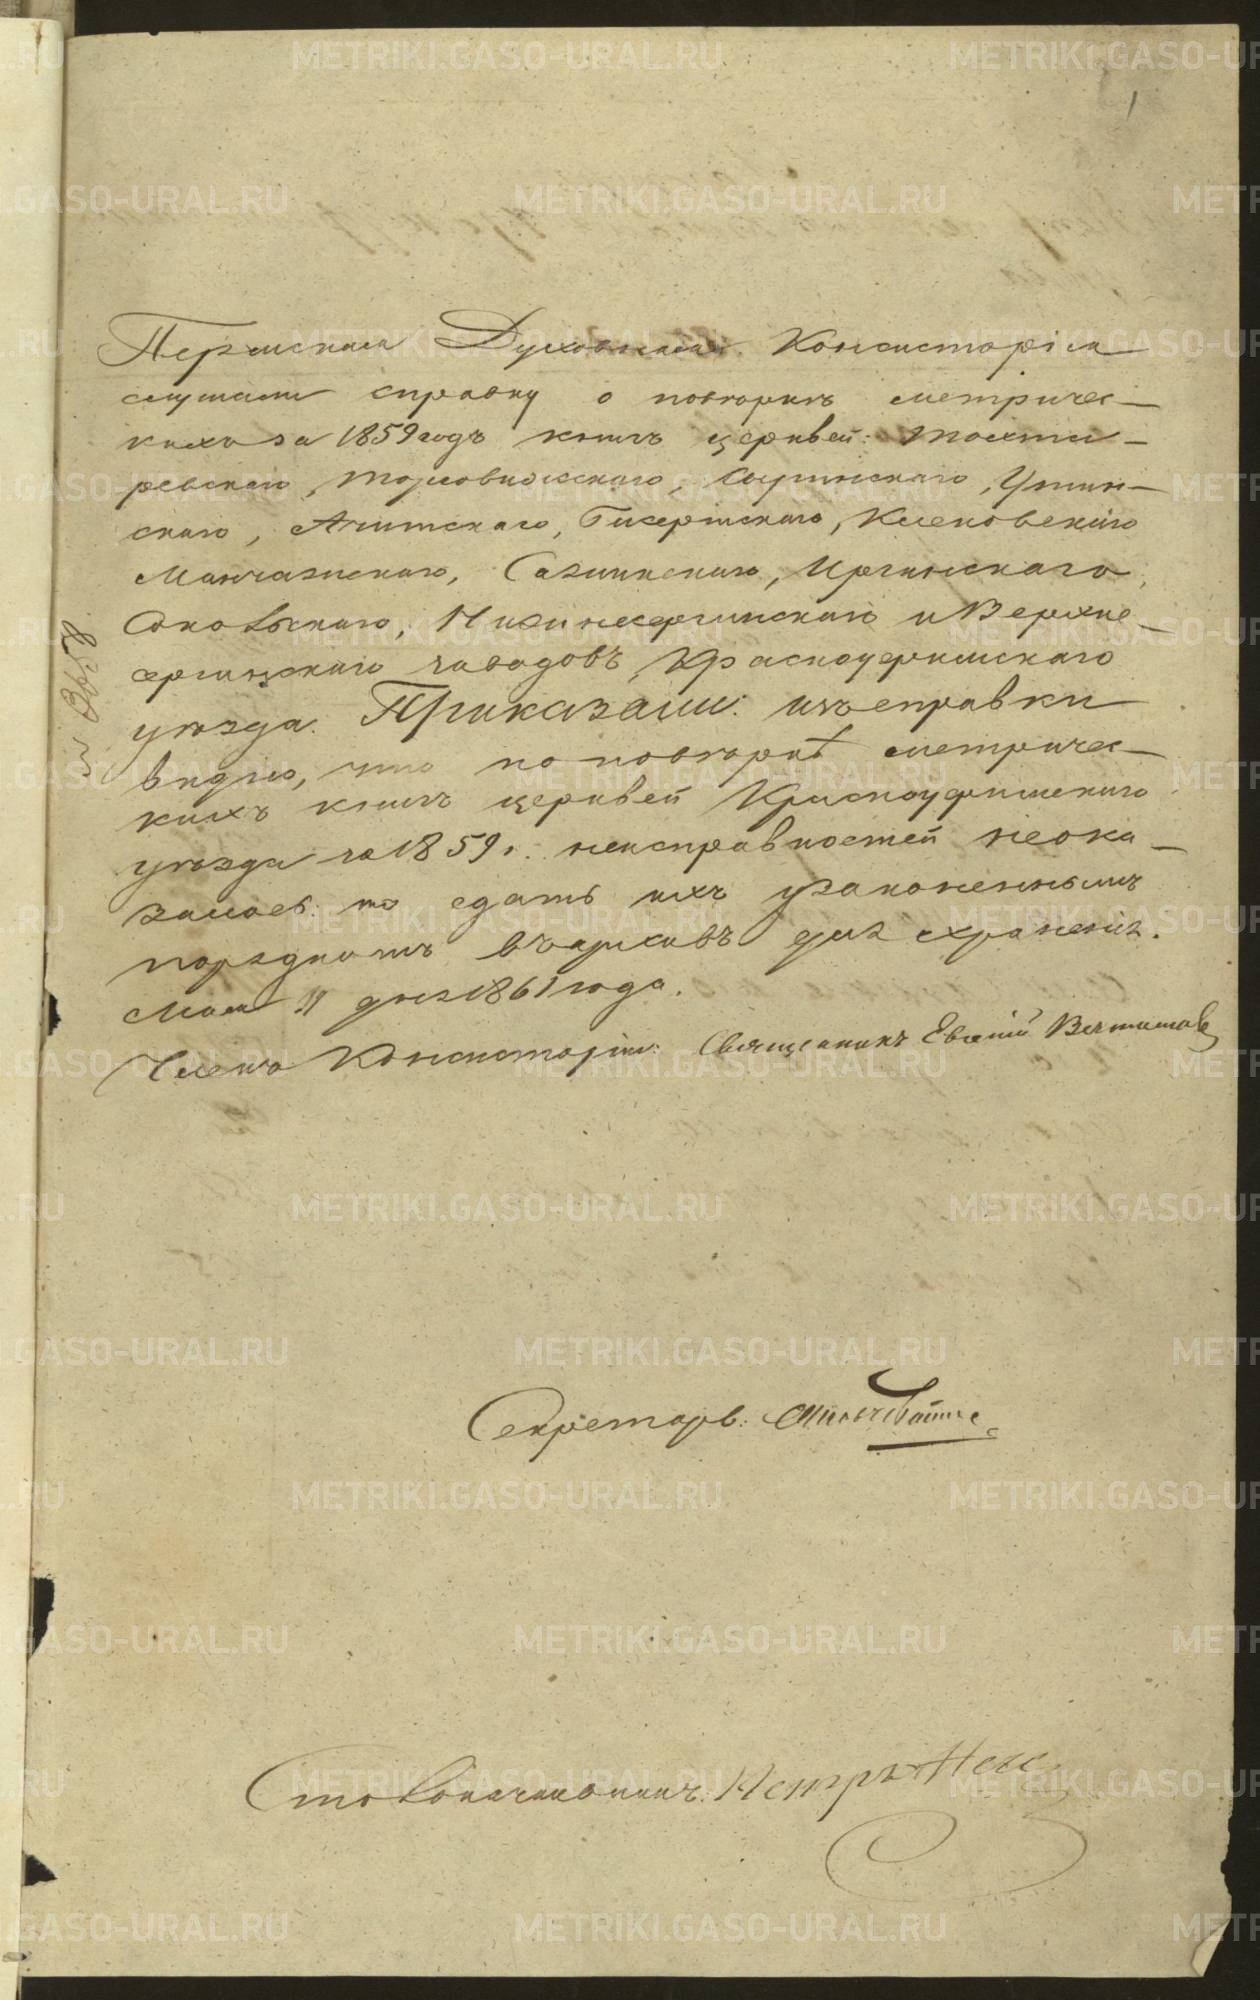 1
Пермская Духовная Консисторія
слушали справку о повторкѣ метричес-
кихъ за 1859 годъ книгъ церквей: Тохта-
ревскаго, Торговижскаго, Сыринскаго, Уткин-
скаго, Ачитскаго, Бисертскаго, Кленовскаго
Манчажскаго, Сажинскаго, Иргинскаго,
Нижнесергинскаго и Верхне-
сергинскаго заводовъ, Красноуфимскаго
уѣзда. Приказали: изъ справки
видно, что по повторкѣ метричес-
кихъ книгъ церквей Красноуфимскаго
уѣзда за 1859 г. неисправностей не ока-
залось: то сдать ихъ узаконеннымъ
порядкомъ въ архивъ для храненія.
Мая 11 дня 1861 года.
Членъ Консисторіи: Священникъ Евгеній
Секретарь:
Столоначальникъ: Петръ
METRIKI.GASO-URAL.RU